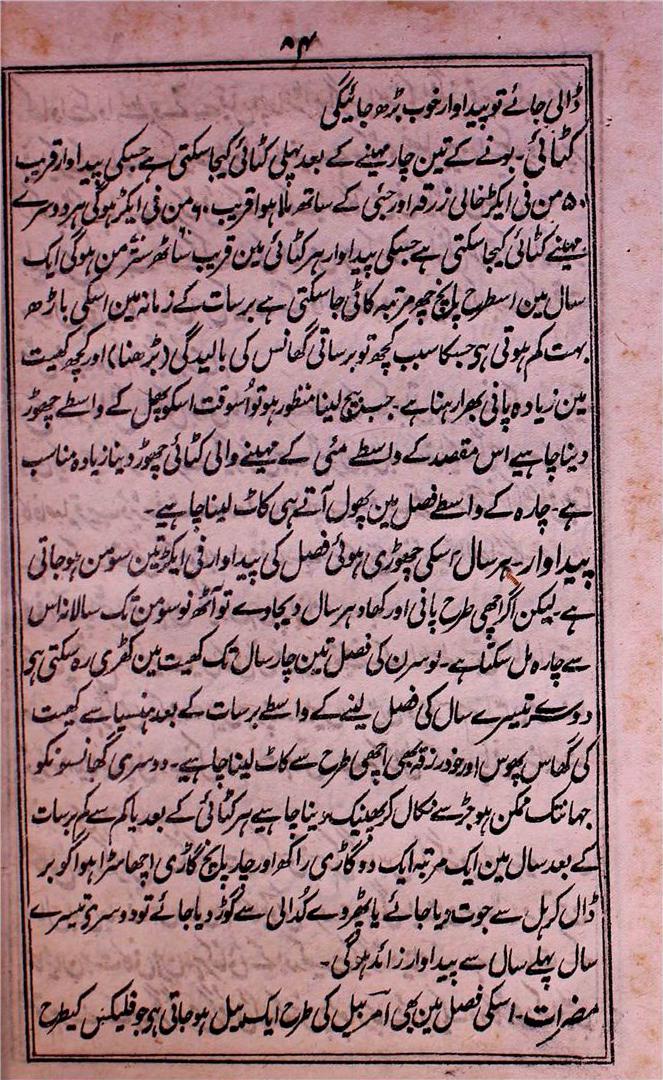 ۸۴
ڈالی جائے تو پیداوار خوب بڑھ جائیگی
کٹائی۔ بونے کے تین چار مہینے کے بعد پہلی کٹائی کیجا سکتی ہے جسکی پیداوار قریب
۵۰ من فی ایکڑ خالی زرقہ اور جئی کے ساتھ ملا ہوا قریب ۶۰ من فی ایکڑ ہوگی ہر دوسرے
مہینے کٹائی کیجا سکتی ہے جسکی پیداوار ہر کٹائی مین قریب ساٹھ ستر من ہوگی ایک
سال مین اسطرح پانچ چھ مرتبہ کاٹی جا سکتی ہے برسات کے زمانہ مین اسکی باڑھ
بہت کم ہوتی ہی جسکا سبب کچھ تو برساتی گھانس کی بالیدگی (بڑھنا) اور کچھ کھیت
مین زیادہ پانی بھرا رہنا ہے۔ جب بیج لینا منظور ہو تو اُسوقت اسکو پھل کے واسطے چھوڑ
دینا چاہیے اس مقصد کے واسطے مئی کے مہینے والی کٹائی چھوڑ دینا زیادہ مناسب
ہے۔ چارہ کے واسطے فصل مین پھول آتے ہی کاٹ لینا چاہیے۔
پیداوار۔ ہر سال اسکی چھوڑی ہوئی فصل کی پیداوار فی ایکڑ تین سو من ہو جاتی
ہے۔ لیکن اگر اچھی طرح پانی اور کھاد ہر سال دیجاوے تو آٹھ نو سو من تک سالانہ اس
سے چارہ مل سکتا ہے۔ لوسرن کی فصل تین چار سال تک کھیت مین کھڑی رہ سکتی ہی
دوسرے تیسرے سال کی فصل لینے کے واسطے برسات کے بعد ہنسیا سے کھیت
کی گھاس پھوس اور خود زرقہ بھی اچھی طرح سے کاٹ لینا چاہیے۔ دوسری گھانسونکو
جہانتک ممکن ہو جڑ سے نکال کر پھینک دینا چاہیے ہر کٹائی کے بعد یا کم سے کم برسات
کے بعد سال مین ایک مرتبہ ایک دو گاڑی راکھ اور چار پانچ گاڑی اچھا سڑا ہوا گوبر
ڈال کر ہل سے جوت دیا جائے یا پھروے کدالی سے گوڑ دیا جائے تو دوسری تیسرے
سال پہلے سال سے پیداوار زائد ہوگی۔
مضرات۔ اسکی فصل مین بھی امربیل کی طرح ایک بیل ہو جاتی ہی جو فلیکس کیطرح